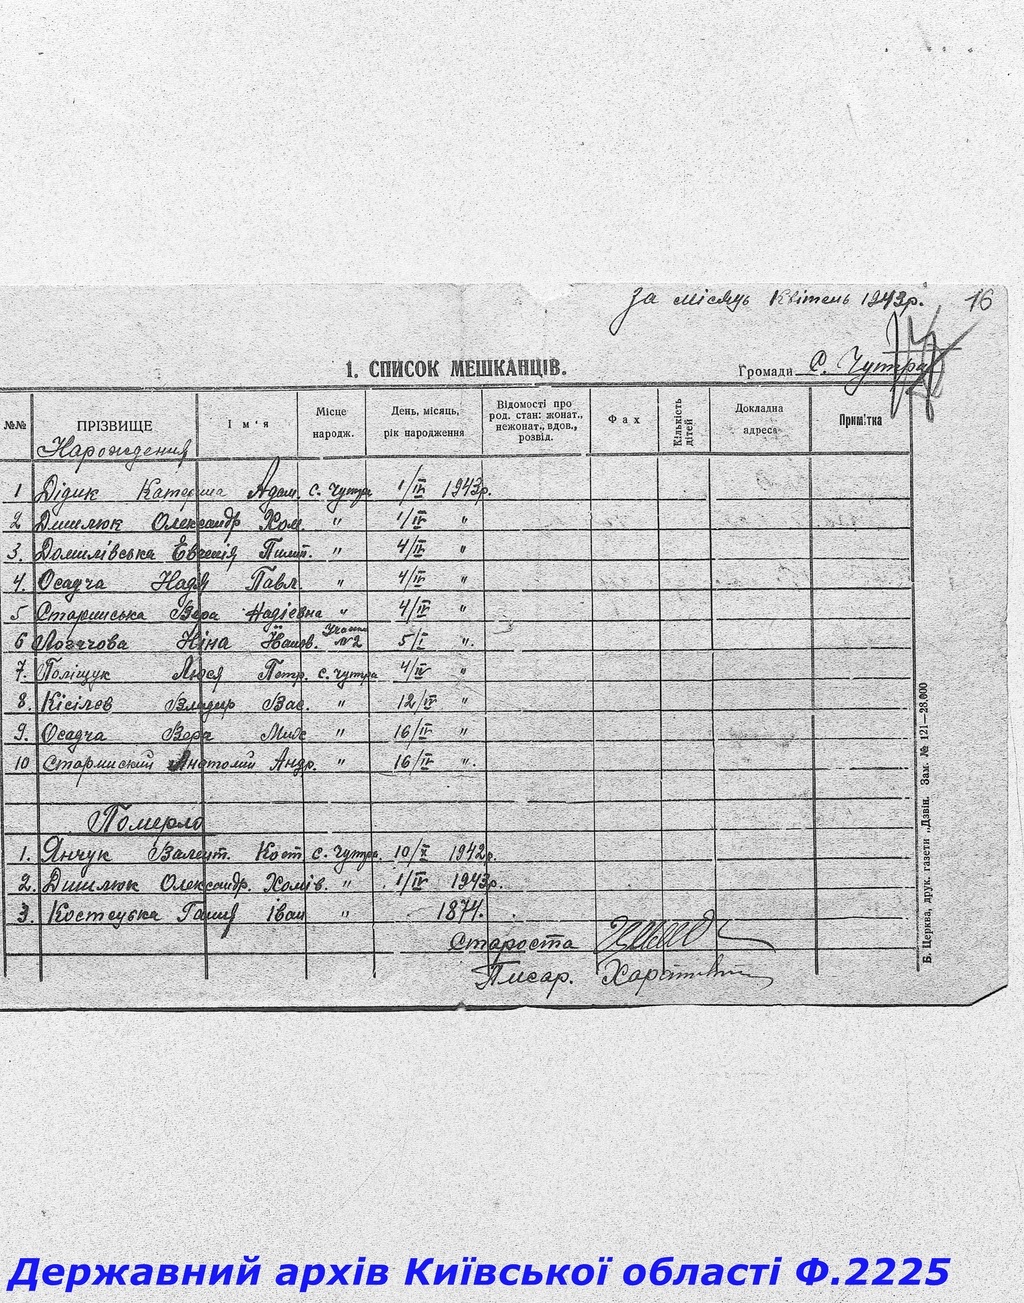 за місяць Квітень 1943р. 16
1. СПИСОК МЕШКАНЦІВ. Громади с. Чутра
№№ ПРІЗВИЩЕ Ім'я Місце народж. День, місяць, рік народження Відомості про род. стан: жонат., нежонат., вдов., розвід. Фах Кількість дітей Докладна адреса Примітка
Народження
1 Дідик Катерина Адам. с. Чутра 1/IV 1943р.
2 Олександр Хом. " 1/IV "
3. Домилівська Євгенія Пилип. " 4/IV "
4. Осадча Надя Павл. " 4/IV "
5 Старинська Вера " 4/IV "
6 Ніна Йванов. №2 5/I ".
7. Поліщук Люся Петр. с. Чутра 4/IV "
8. Кісілєв Владир Вас. " 12/IV "
9. Осадча Вера " 16/IV "
10 Анатолий Андр. " 16/IV ".
Померло
1. Янчук Валент. Кост. с. Чутра. 10/X 1942р.
2. Олександр. Хомів. " 1/IV 1943р.
3. Ганна Іван " 1874.
Староста
Писар.
Б. Церква, друк. газети „Дзвін. Зам. № 121—28.000
Державний архів Київської області Ф.2225